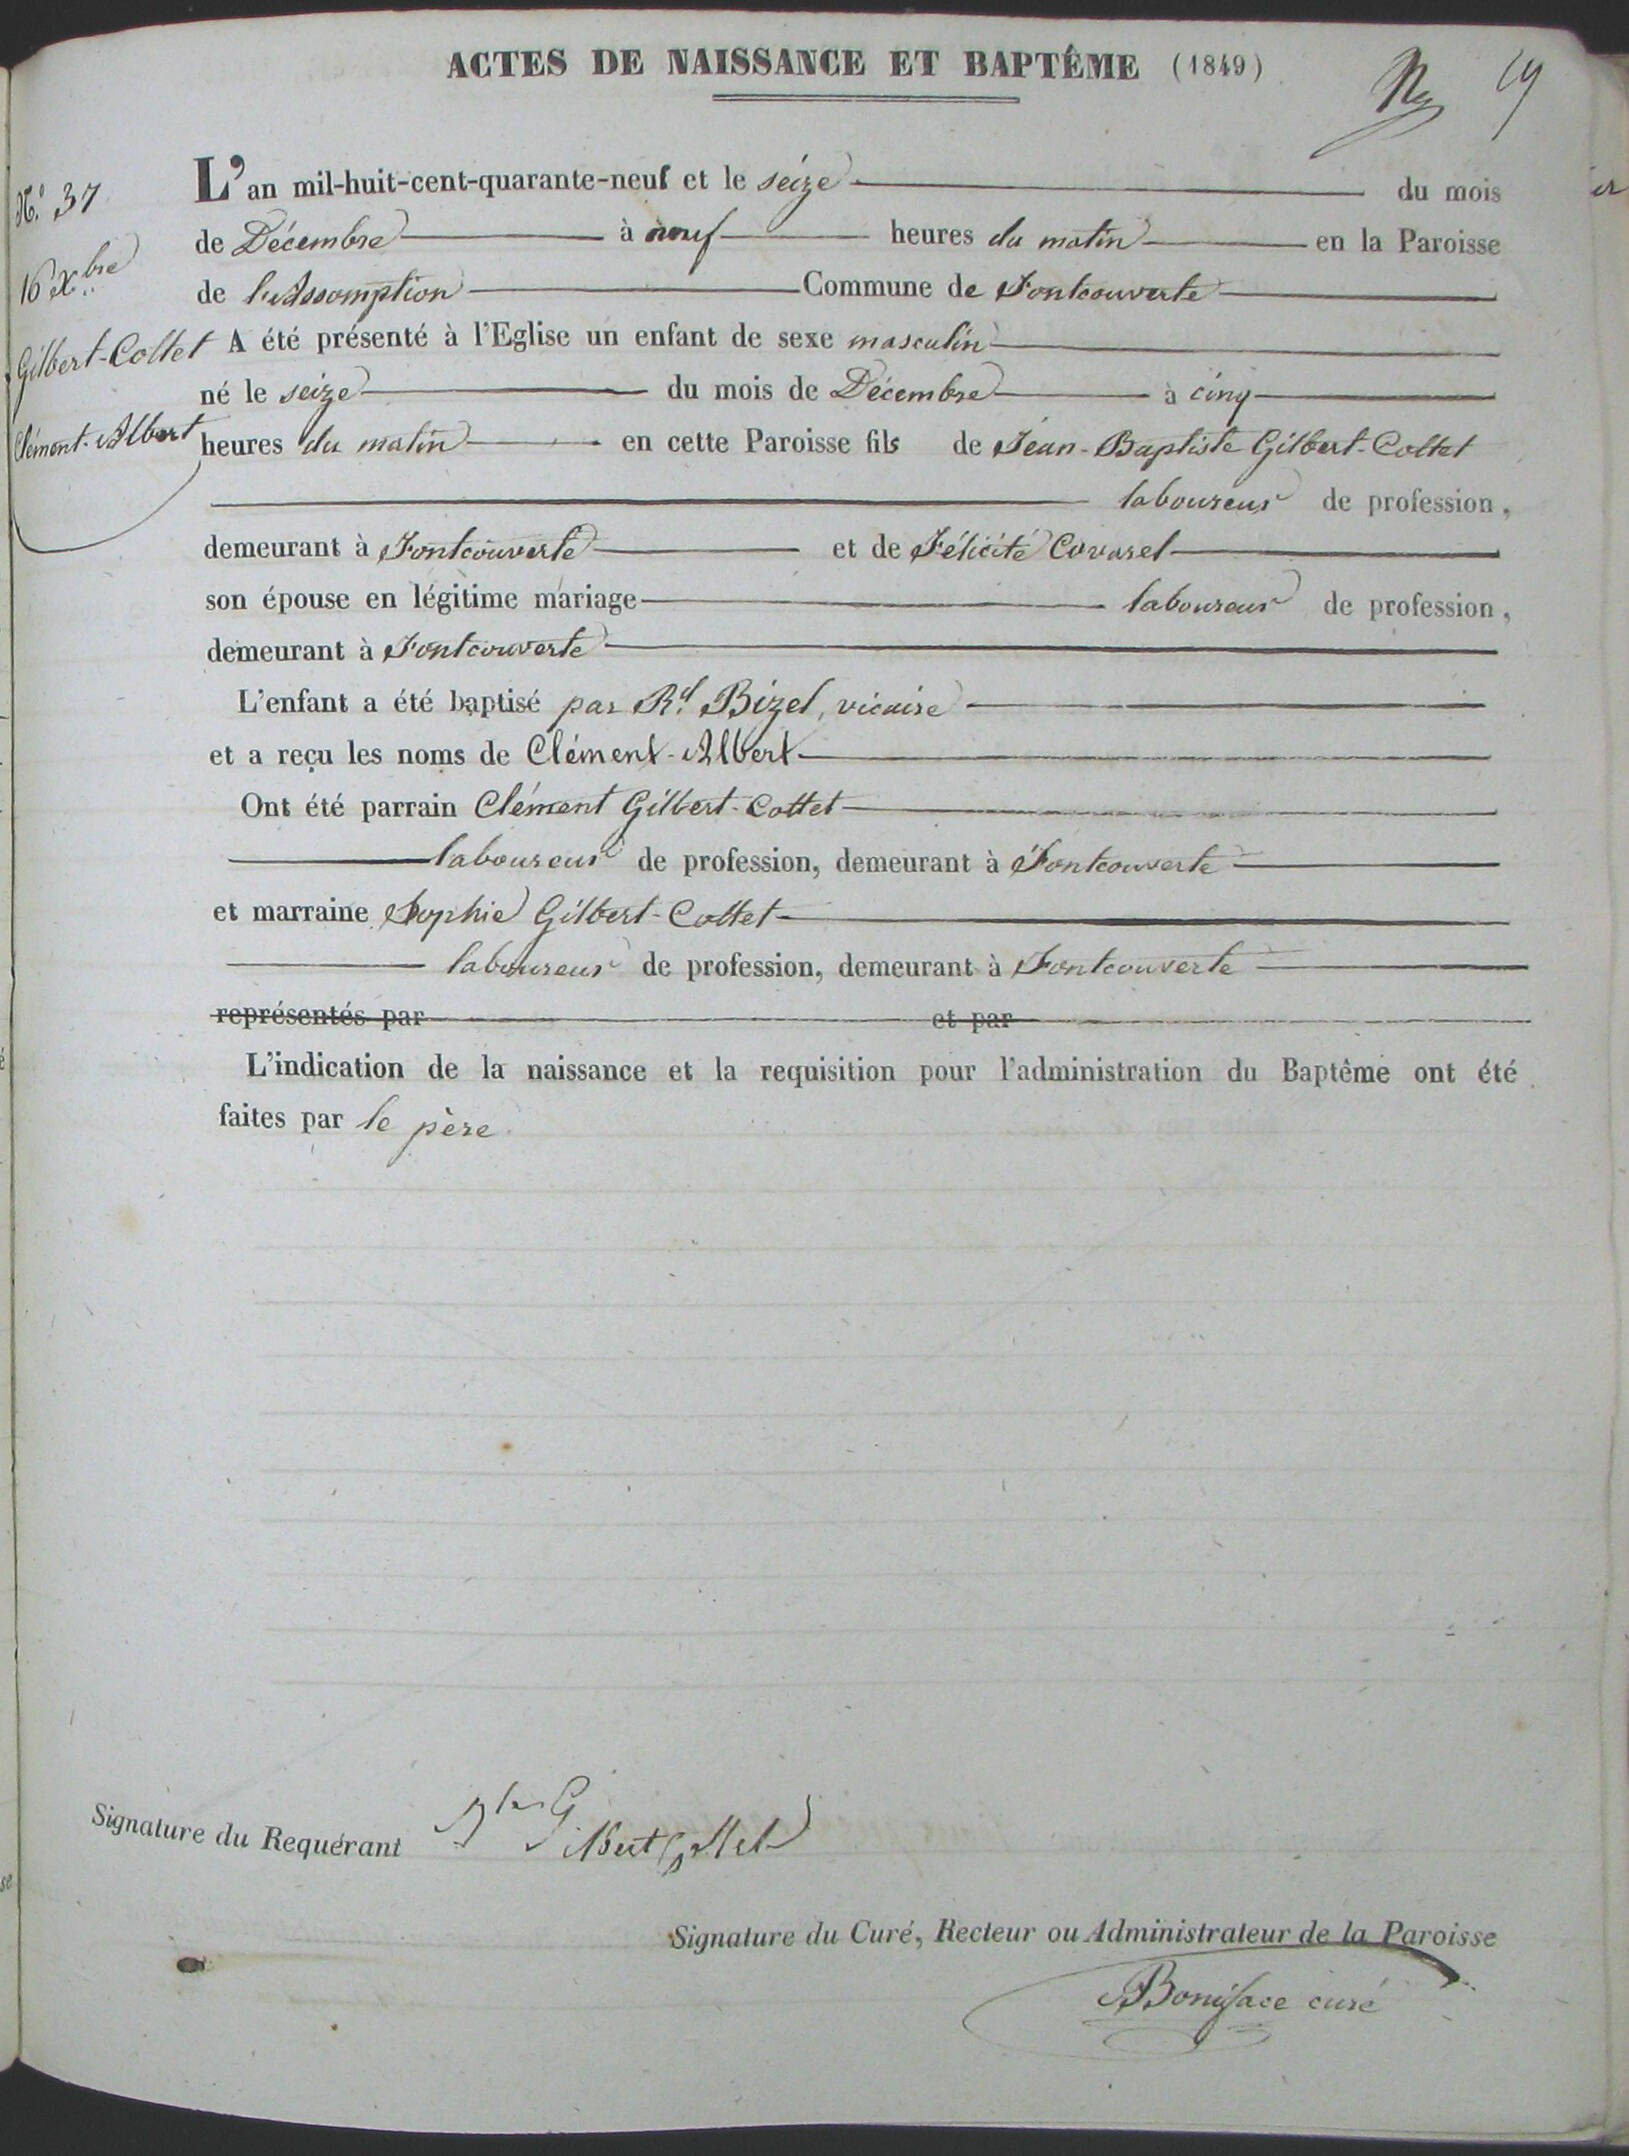 ACTES DE NAISSANCE ET BAPTÊME (1849)
19
N.º 37
16 Xbre
Gilbert-Collet
Clément-Albert
L'an mil-huit-cent-quarante-neuf et le seize du mois
de Décembre à neuf heures du matin en la Paroisse
de l'Assomption Commune de Fontcouverte
A été présenté à l'Eglise un enfant de sexe masculin
né le seize du mois de Décembre à cinq
heures du matin en cette Paroisse fils de Jean-Baptiste Gilbert-Collet
laboureur de profession,
demeurant à Fontcouverte et de Félicité Covarel
son épouse en légitime mariage laboureur de profession,
demeurant à Fontcouverte
L'enfant a été baptisé par Rd Bizel, vicaire
et a reçu les noms de Clément-Albert
Ont été parrain Clément Gilbert-Collet
laboureur de profession, demeurant à Fontcouverte
et marraine Sophie Gilbert-Collet
laboureur de profession, demeurant à Fontcouverte
représentés par et par
L'indication de la naissance et la requisition pour l'administration du Baptême ont été
faites par le père.
Signature du Requérant Gilbert Collet
Signature du Curé, Recteur ou Administrateur de la Paroisse
Boniface curé